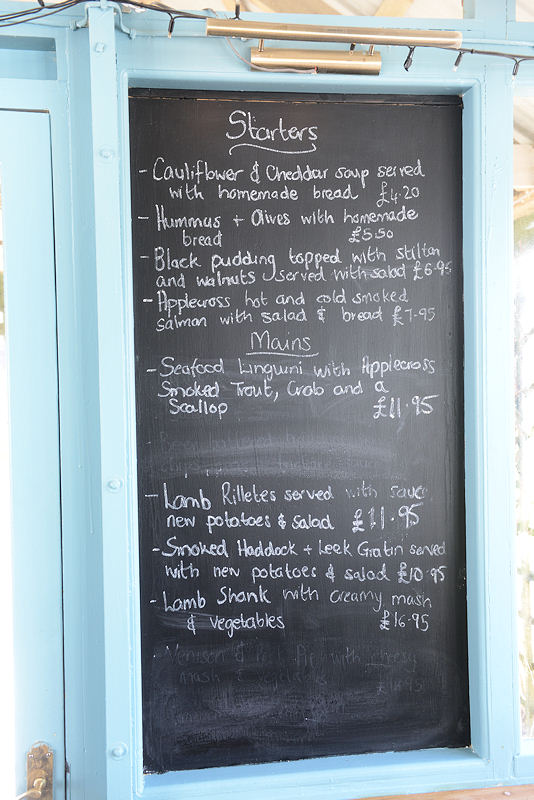 Starters
- Cauliflower & Cheddar soup served
with homemade bread £4.20
- Hummus + Olives with homemade
bread £5.50
- Black pudding topped with stilton
and walnuts served with salad £6.95
- Applecross hot and cold smoked
salmon with salad & bread £7.95
Mains
- Seafood Linguini with Applecross
Smoked Trout, Crab and a
Scallop £11.95
- Lamb Rilletes served with sauce
new potatoes & salad £11.95
- Smoked Haddock + Leek Gratin served
with new potatoes & salad £10.95
- Lamb Shank with creamy mash
& vegetables £16.95
Venison & Pie with cheesy
mash & vegetables